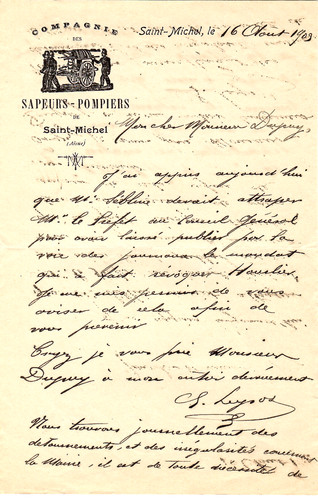 COMPAGNIE
DES
SAPEURS-POMPIERS
DE
Saint-Michel
(Aisne)
Saint-Michel, le 16 Aout 1903
Mon cher Monsieur Dupuy,
J'ai appris aujourd'hui
que Mr Leblin devait attraper
Mr. le Préfet au Conseil Général
pour avoir laissé publier par la
voie des journaux le mandat
qui a fait révoquer
Je me permis de vous
aviser de cela afin de
vous prévenir
Croyez je vous prie Monsieur
Dupuy à mon entier dévouement
Nous trouvons journellement des
détournements, et des irrégularités concernant
la Mairie, il est de toute nécessité de